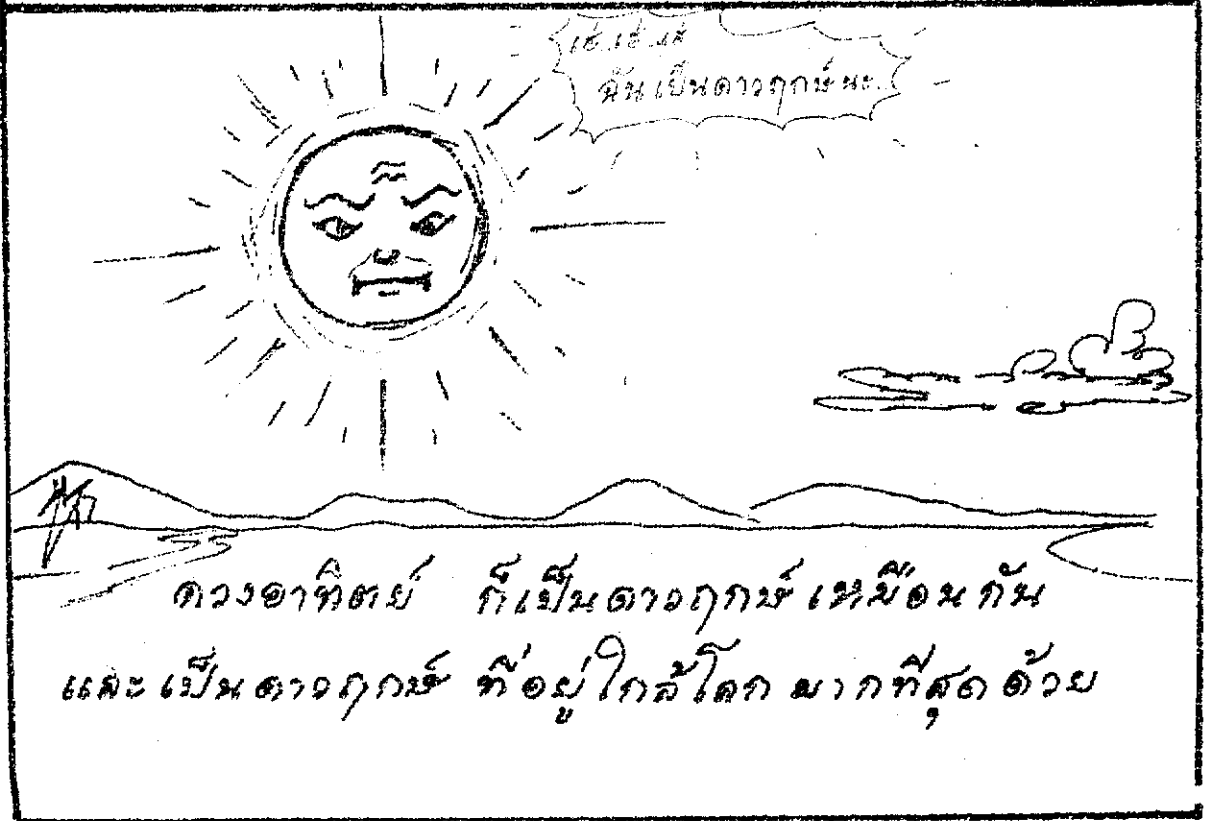 เฮ่ เฮ่ เฮ่
ฉันเป็นดาวฤกษ์นะ
ดวงอาทิตย์ ก็เป็นดาวฤกษ์เหมือนกัน
และเป็นดาวฤกษ์ ที่อยู่ใกล้โลกมากที่สุดด้วย